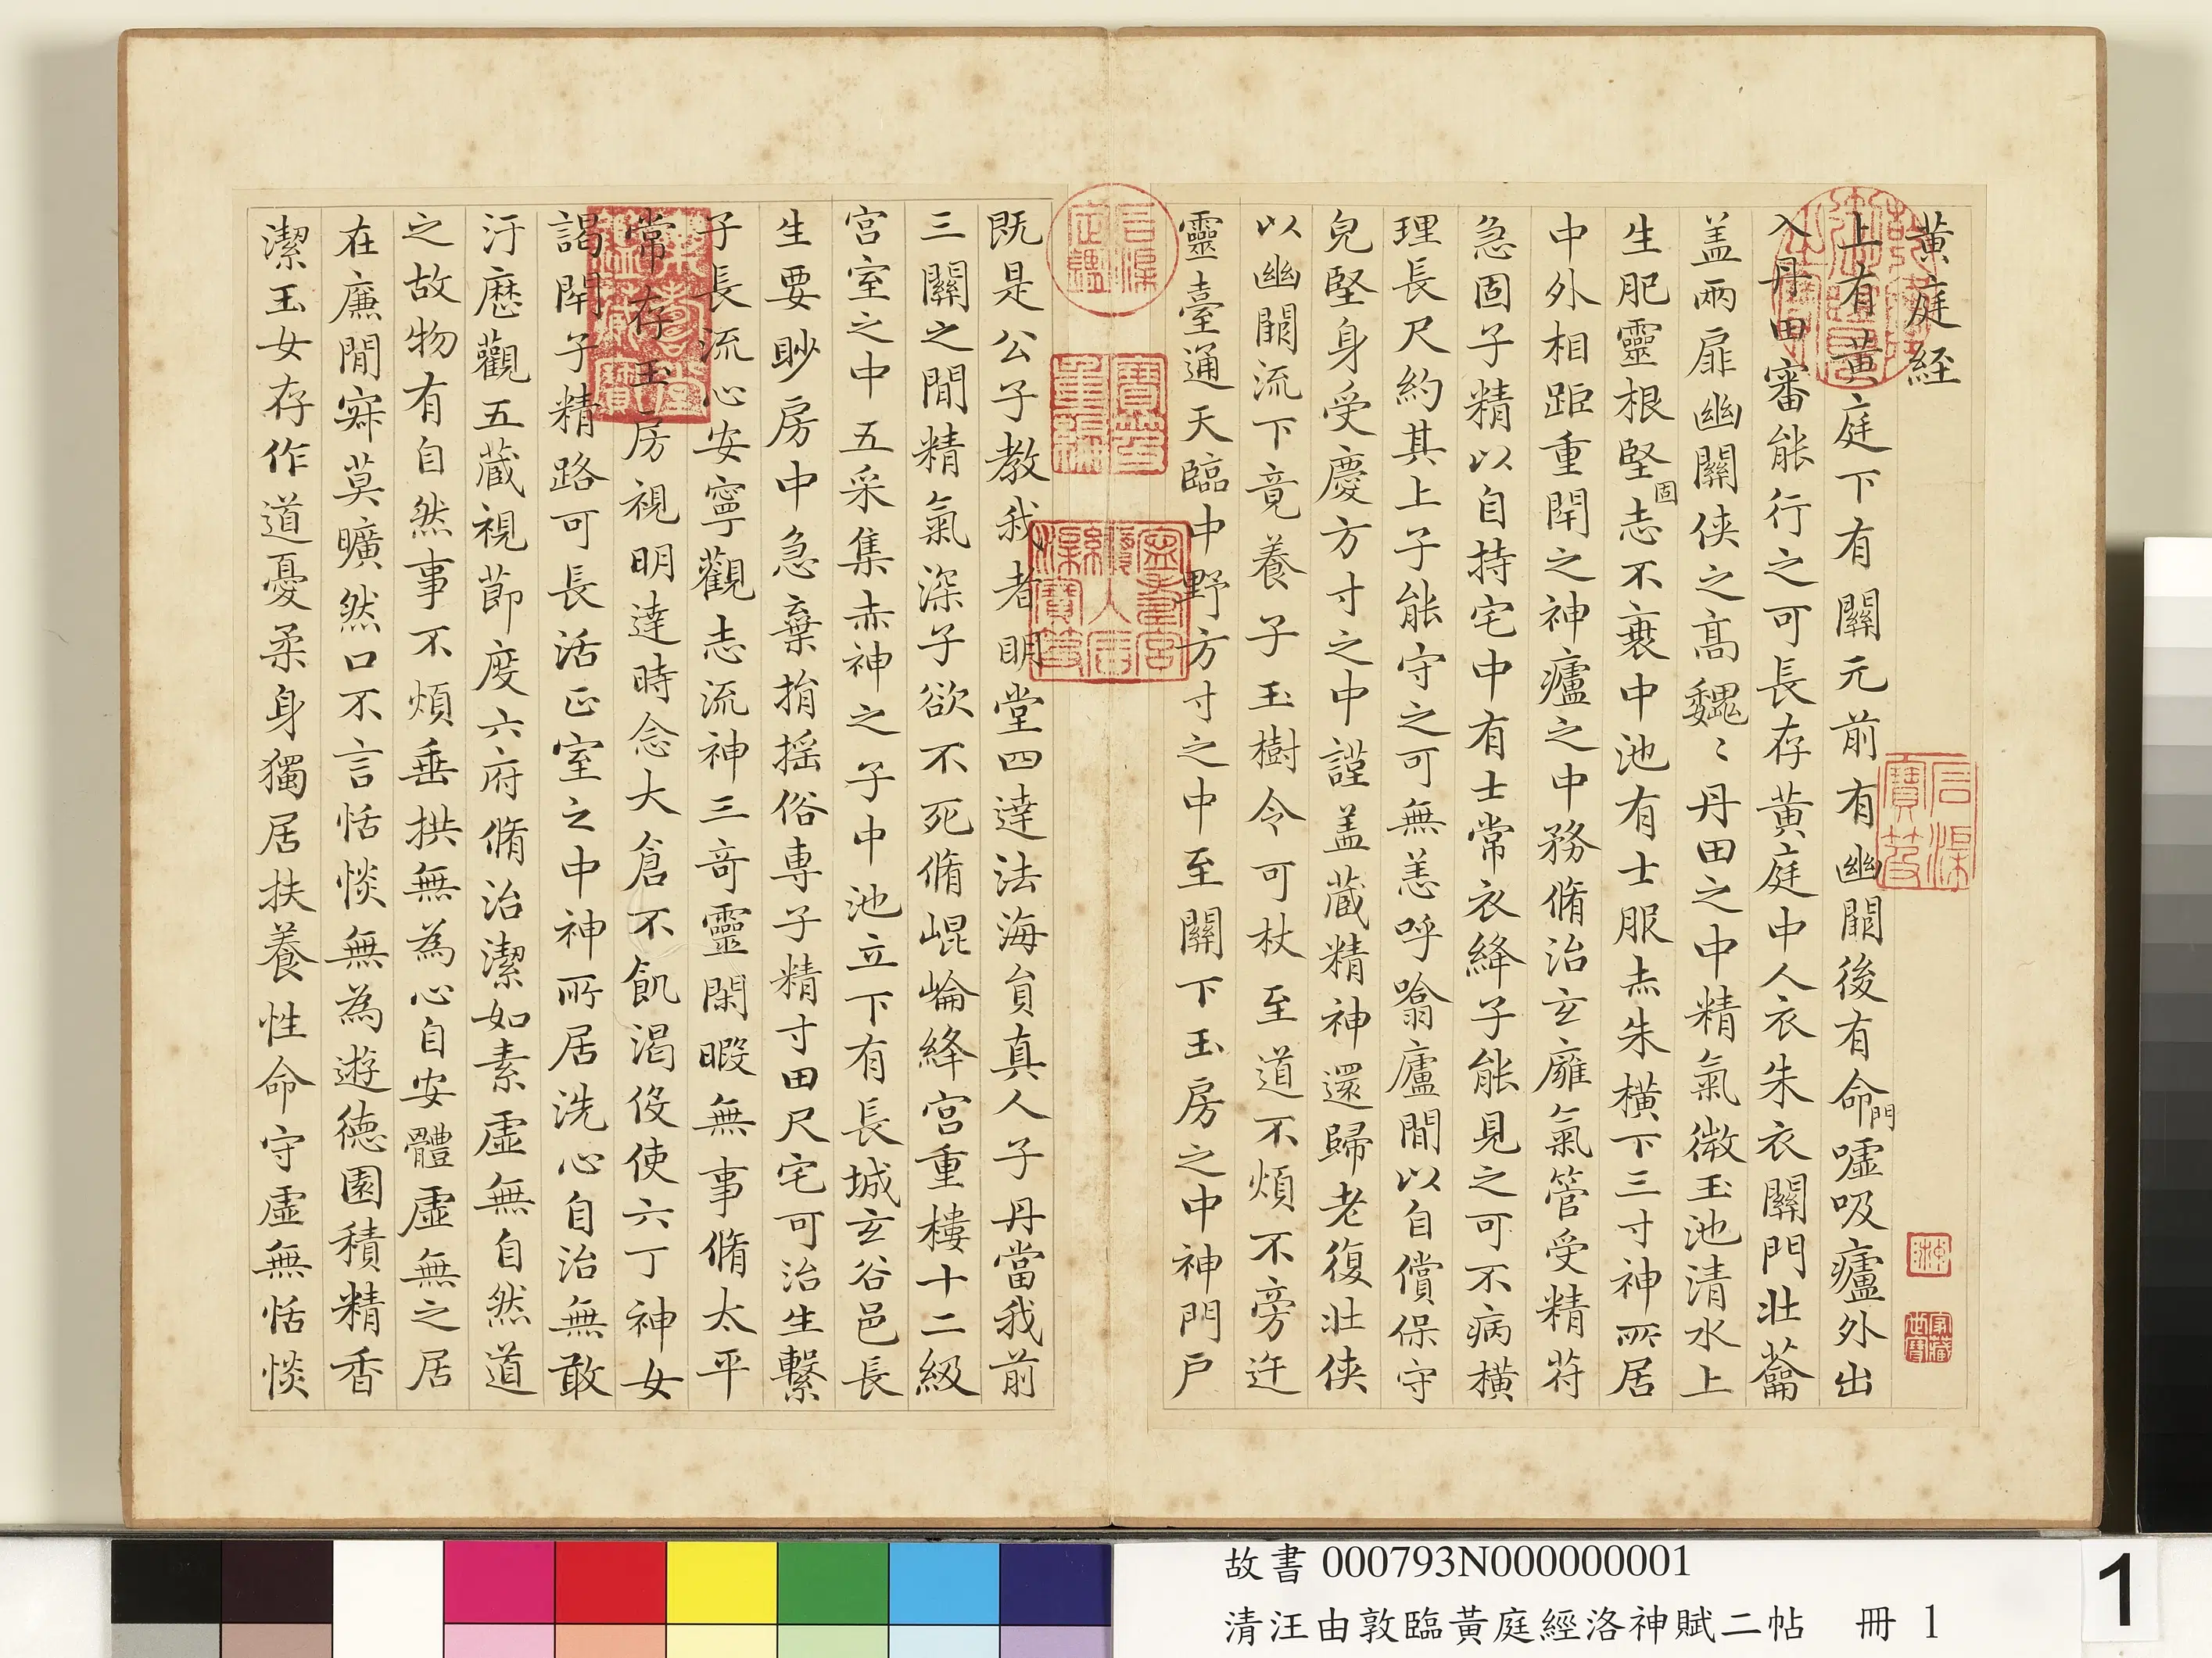 黃庭經
上有黃庭下有關元前有幽闕後有命門噓吸廬外出
入丹田審能行之可長存黃庭中人衣朱衣關門壯蘥
盖兩扉幽關俠之高巍〻丹田之中精氣微玉池清水上
生肥靈根堅固志不衰中池有士服赤朱橫下三寸神所居
中外相距重閇之神廬之中務脩治玄廱氣管受精苻
急固子精以自持宅中有士常衣絳子能見之可不病橫
理長尺約其上子能守之可無恙呼噏廬閒以自償保守
皃堅身受慶方寸之中謹盖藏精神還歸老復壯俠
以幽闕流下竟養子玉樹令可杖至道不煩不旁迕
靈臺通天臨中野方寸之中至關下玉房之中神門戶
既是公子教我者明堂四達法海貟真人子丹當我前
三關之閒精氣深子欲不死脩崐崘絳宮重樓十二級
宮室之中五采集赤神之子中池立下有長城玄谷邑長
生要眇房中急棄捐搖俗專子精寸田尺宅可治生繫
子長流心安寧觀志流神三竒靈閑暇無事脩太平
常存玉房視明達時念大倉不飢渴役使六丁神女
謁閇子精路可長活正室之中神所居洗心自治無敢
汙歷觀五藏視莭度六府脩治潔如素虛無自然道
之故物有自然事不煩垂拱無為心自安體虛無之居
在廉閒寂莫曠然口不言恬惔無為遊德園積精香
潔玉女存作道憂柔身獨居扶養性命守虛無恬惔
故書 000793N000000001
清汪由敦臨黃庭經洛神賦二帖 冊 1
1